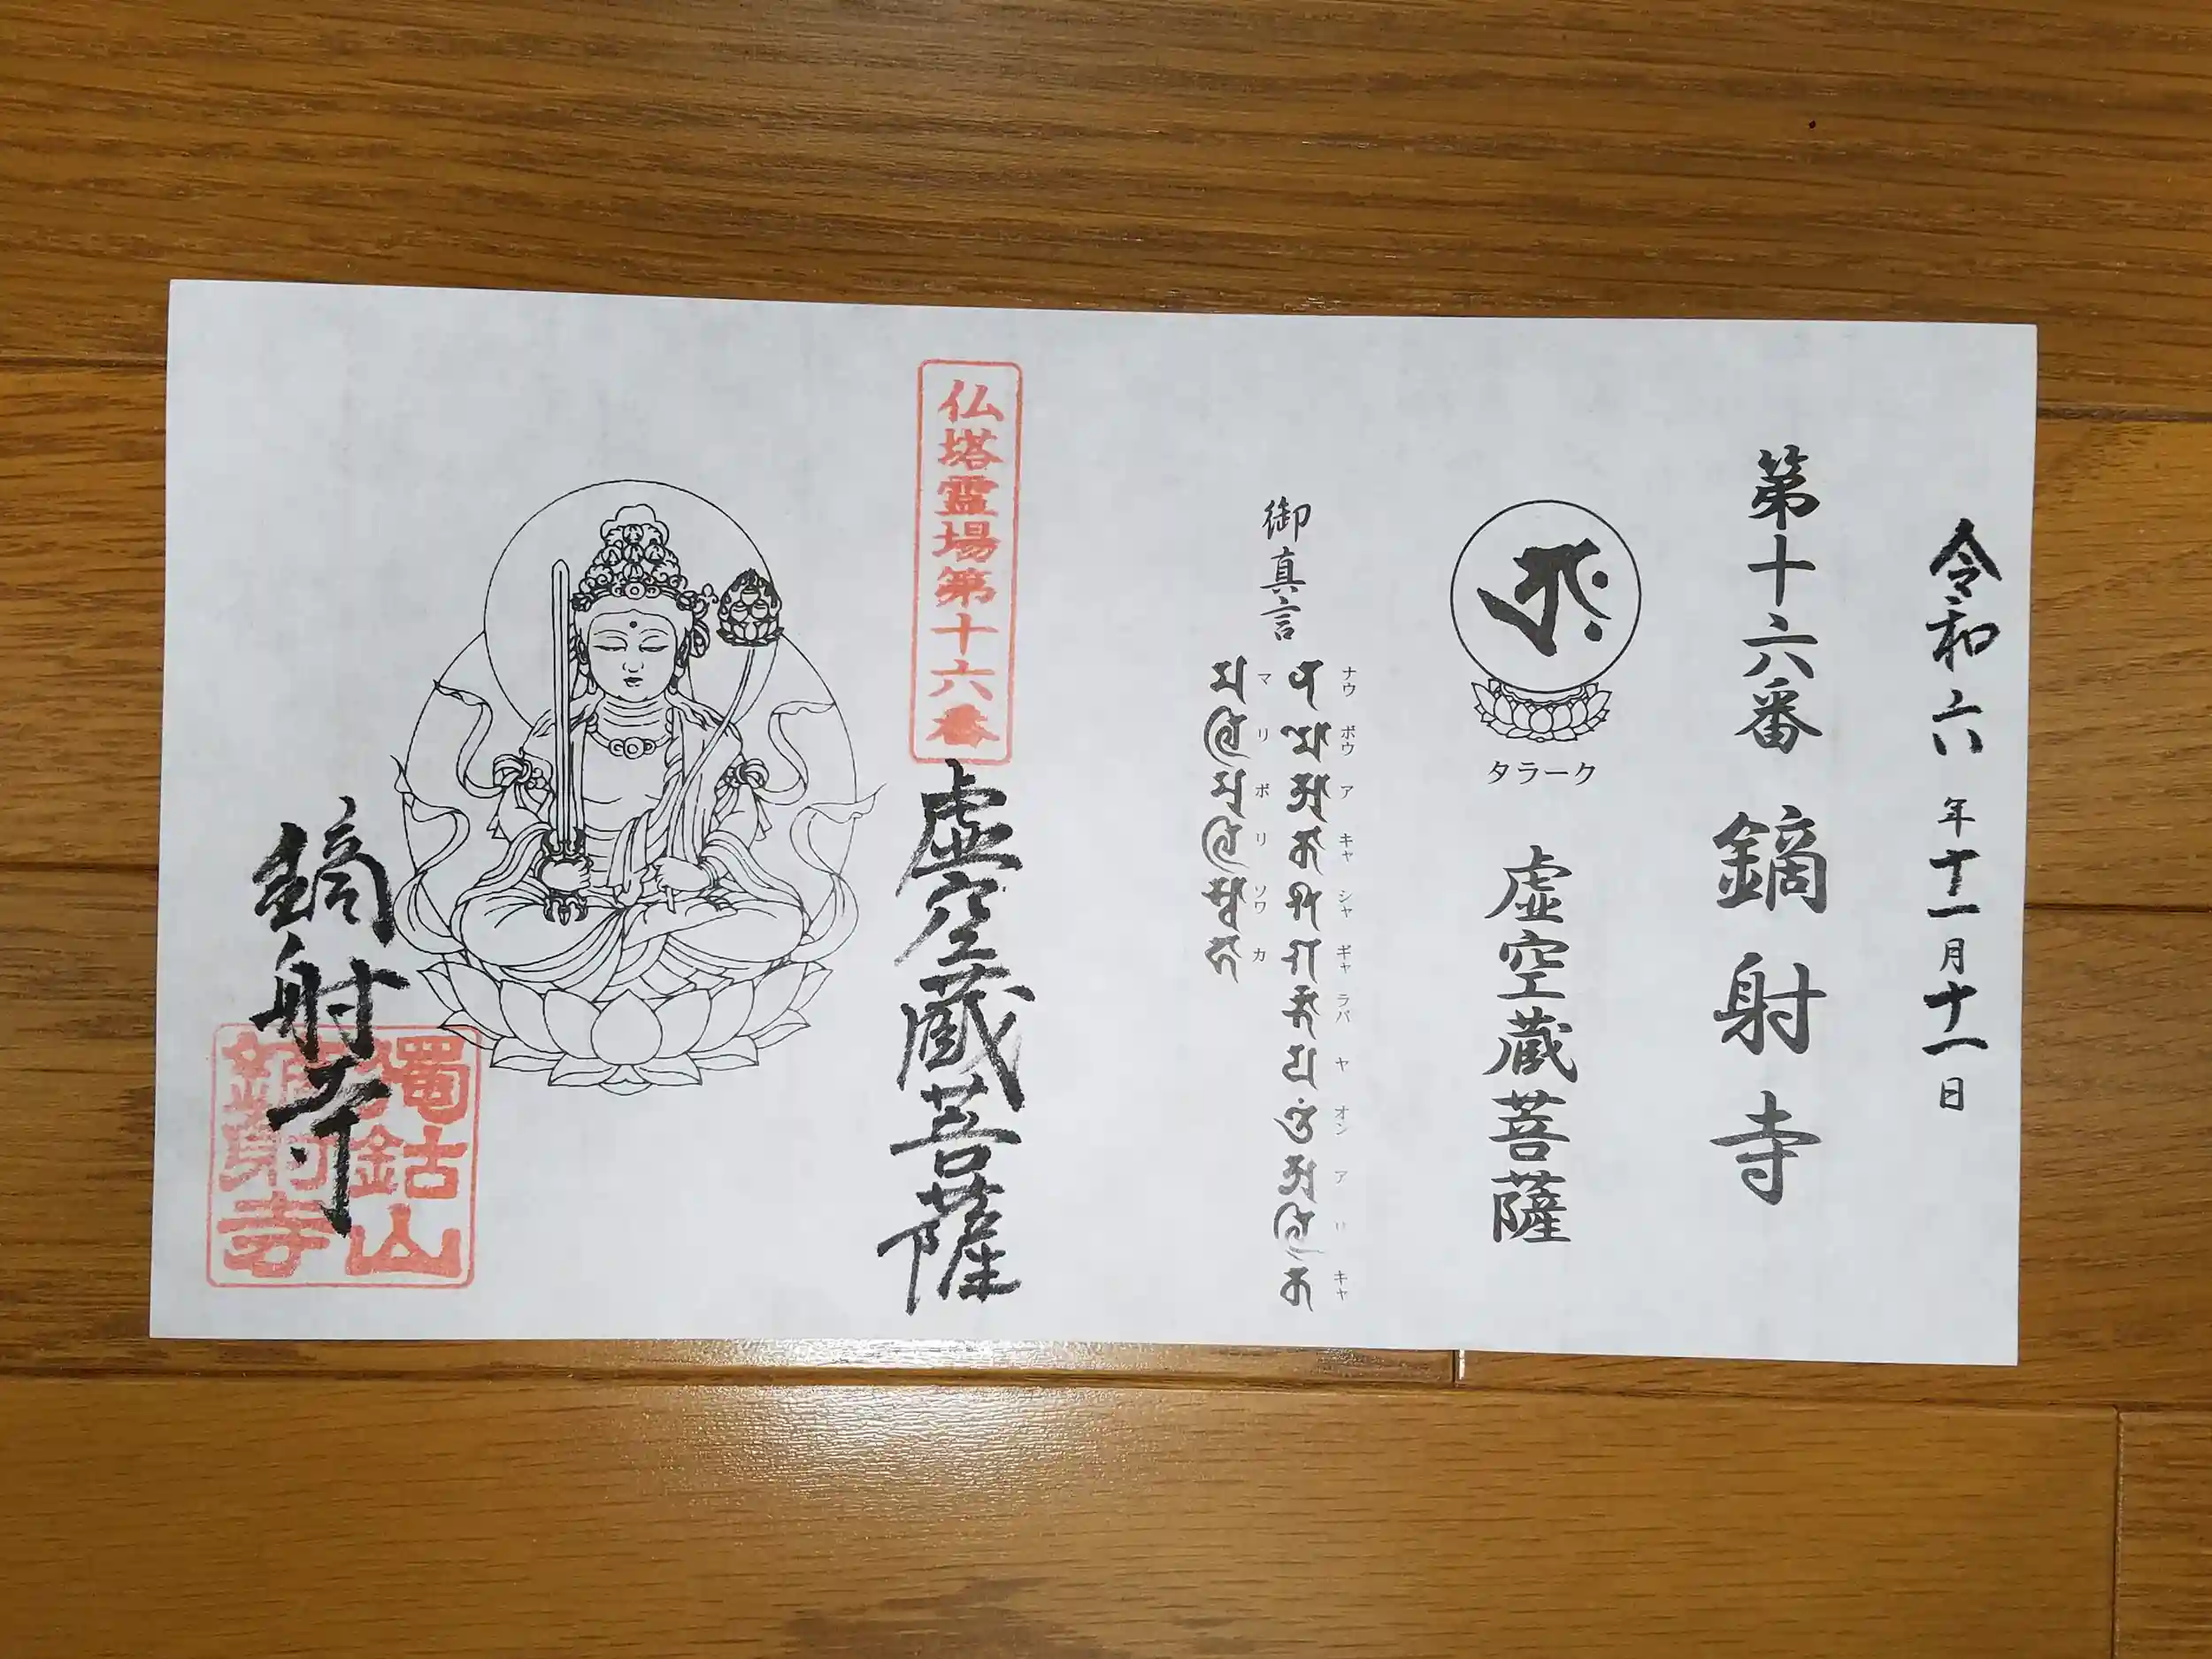 令和六年十一月十一日
第十六番 鏑射寺
タラーク
虚空蔵菩薩
御真言
ナウ ボウ ア キャ シャ ギャ ラバ ヤ オン ア リ キャ
マ リ ボ リ ソワ カ
仏塔霊場第十六番
虚空蔵菩薩
鏑射寺
獨鈷山
鏑射寺